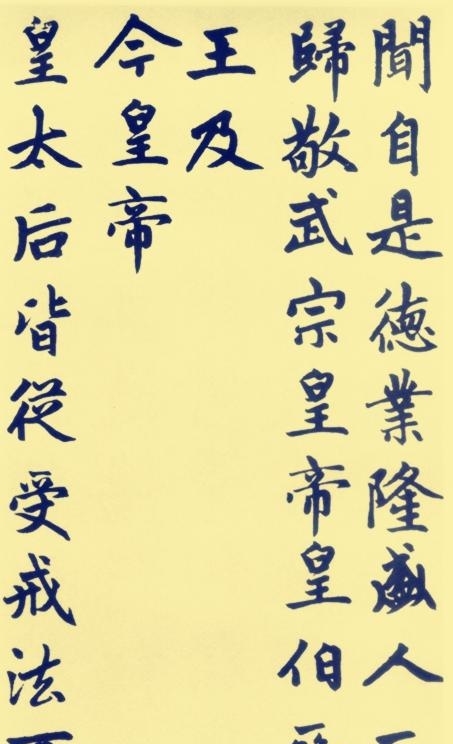 聞自是徳業隆盛人
歸敬武宗皇帝皇伯
王及
今皇帝
皇太后皆從受戒法